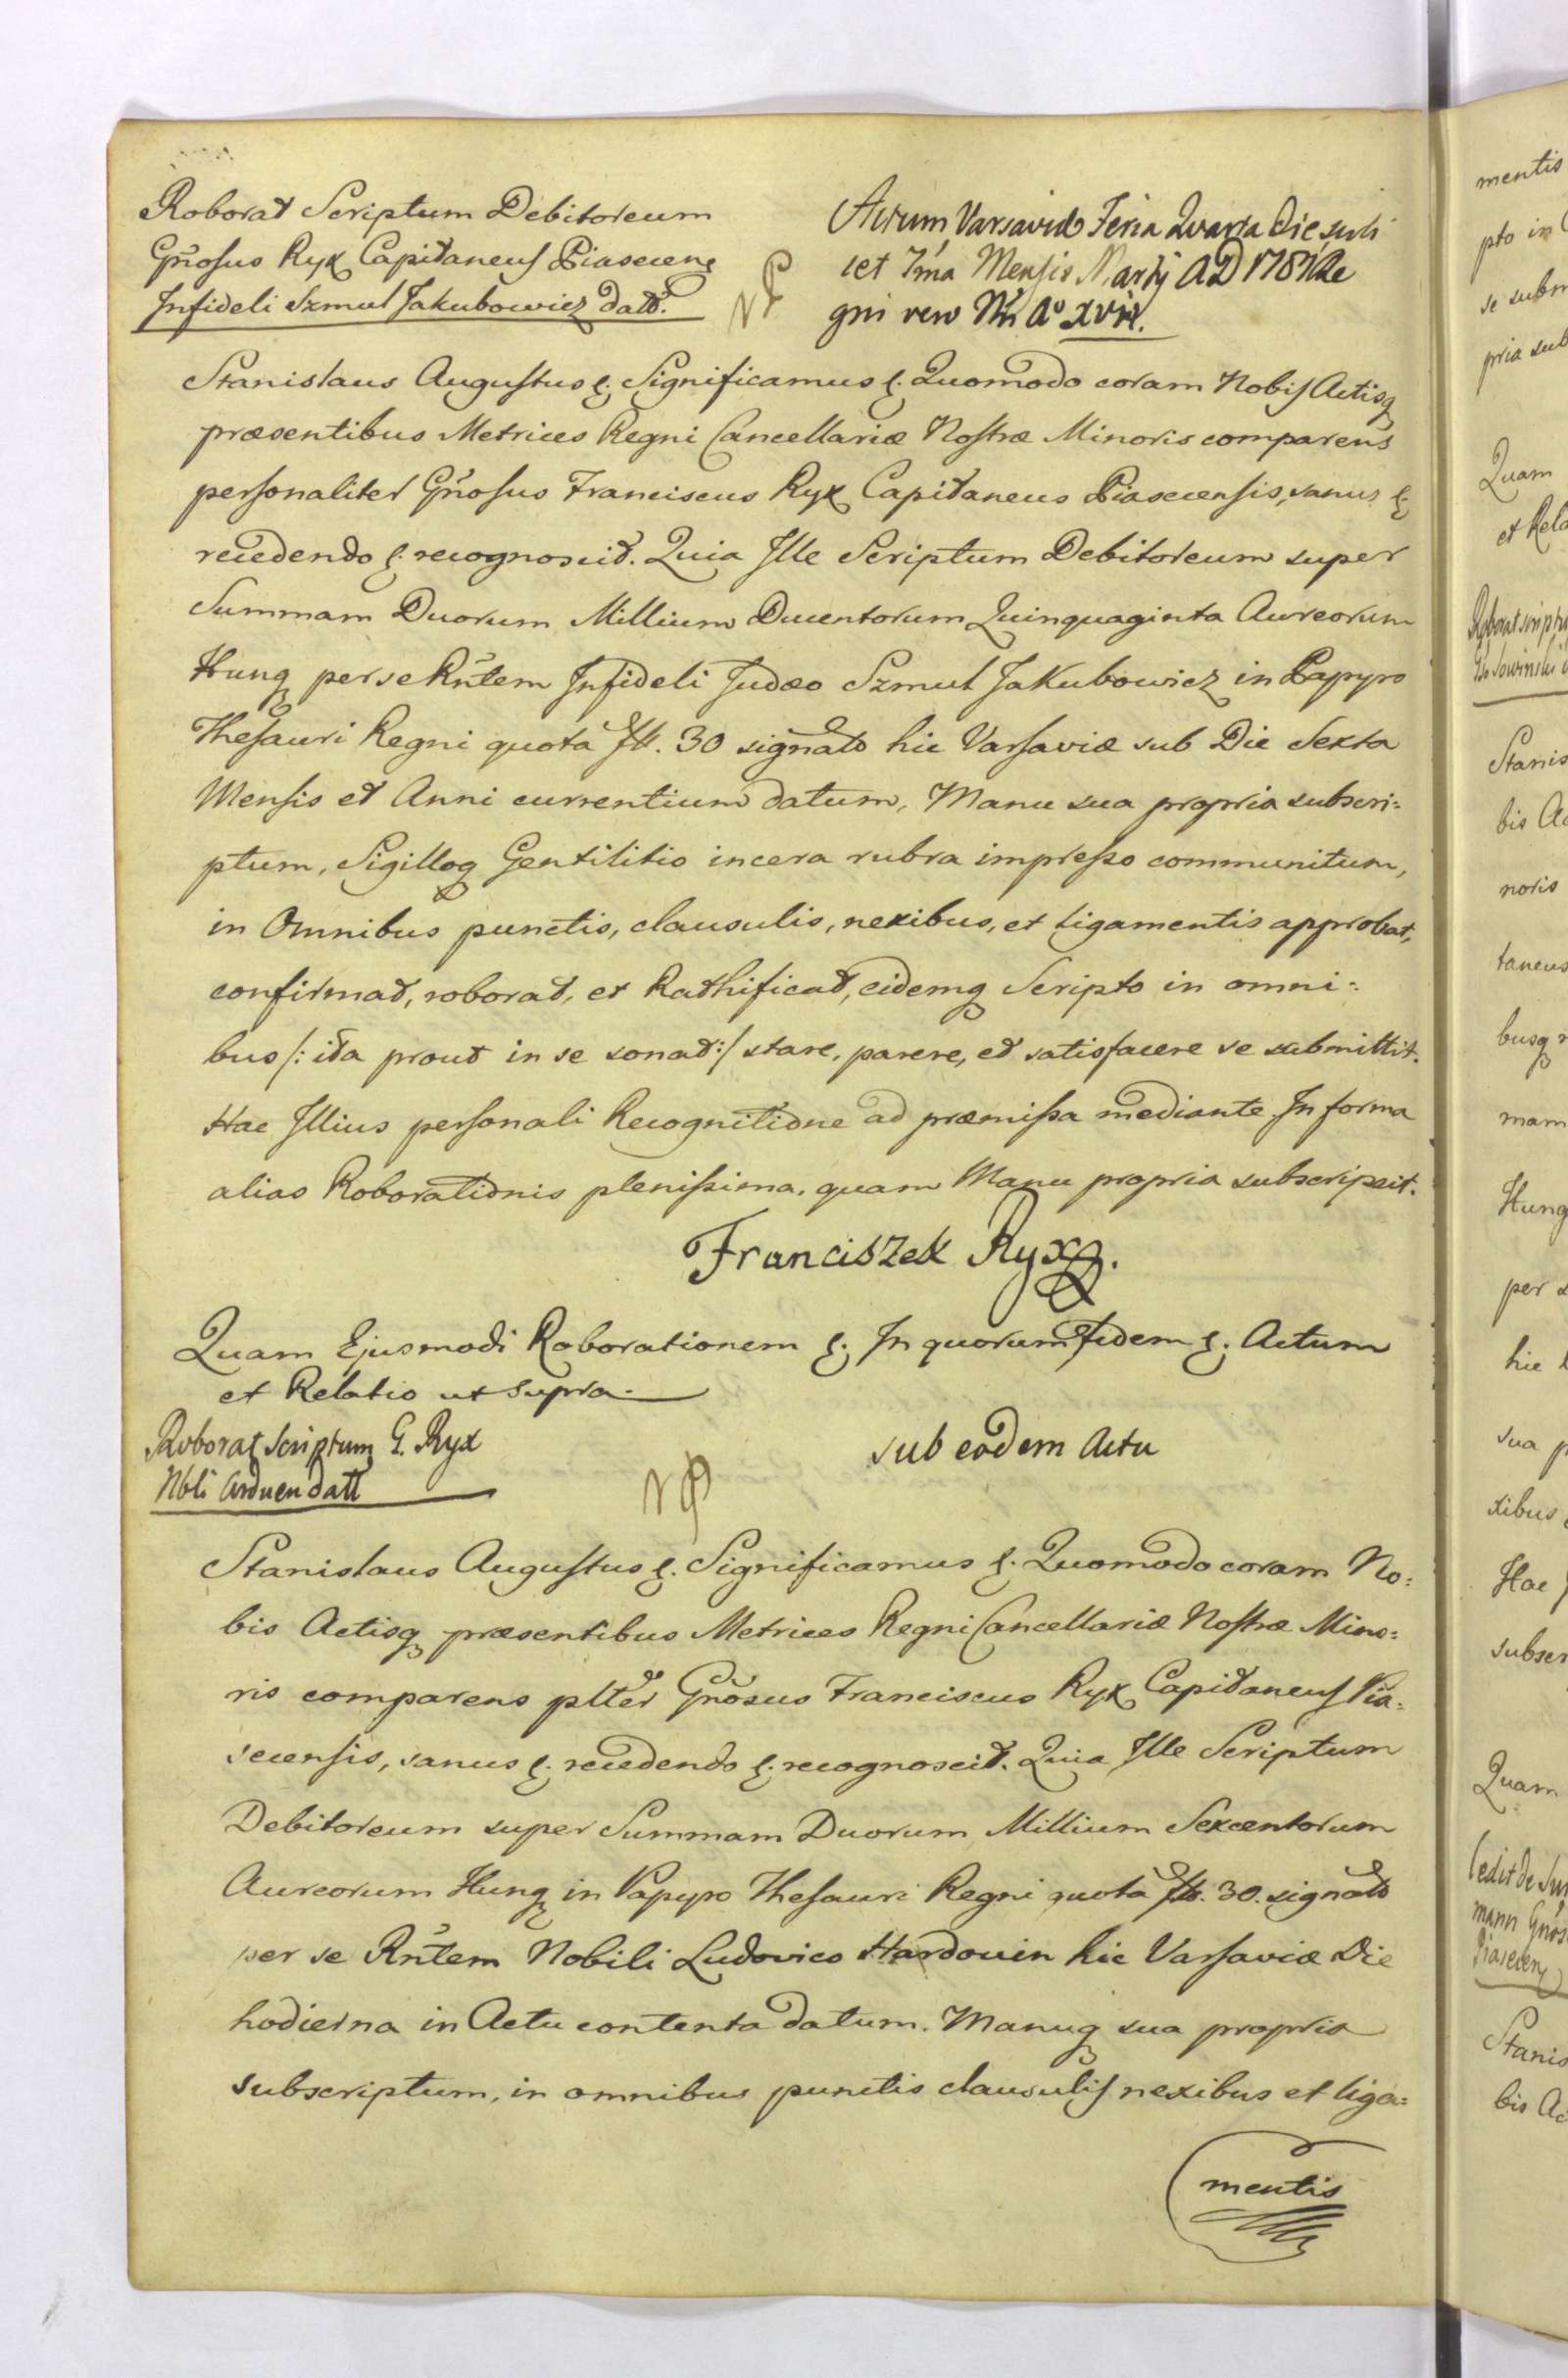 Roborat Scriptum Debitoreum
Gñosus Ryx Capitaneus Piasecens
Infideli Szmul Jakubowicz datt.
Actum Varsaviæ Feria Quarta Die scili
cet 7ma Mensis Martij AD 1781 Re
gni vero Nri Aº XVII.
Stanislaus Augustus &. Significamus &. Quomodo coram Nobis Actisq
præsentibus Metrices Regni Cancellariæ Nostræ Minoris comparens
personaliter Gñosus Franciscus Ryx Capitaneus Piasecensis, sanus &.
recedendo &. recognoscit. Quia Ille Scriptum Debitoreum super
Summam Duorum Millium Ducentorum Quinquaginta Aureorum
Hung per se Rñtem Infideli Judæo Szmul Jakubowicz in Papyro
Thesauri Regni quota fl. 30 signato hic Varsaviæ sub Die Sexta
Mensis et Anni currentium datum, Manu sua propria subscri=
ptum, Sigilloq Gentilitio in cera rubra impresso communitum,
in Omnibus punctis, clausulis, nexibus, et ligamentis approbat,
confirmat, roborat, et Rathificat, eidemq Scripto in omni=
bus /: ita prout in se sonat :/ stare, parere, et satisfacere se submittit.
Hac Illius personali Recognitione ad præmissa mediante. In forma
alias Roborationis plenissima, quam Manu propria subscripsit.
Franciszek Ryx.
Quam Ejusmodi Roborationem &. In quorum fidem &. Actum
et Relatio ut supra.
Roborat Scriptum G. Ryx
Nbli Arduen datt
sub eodem Actu
Stanislaus Augustus &. Significamus &. Quomodo coram No=
bis Actisq præsentibus Metrices Regni Cancellariæ Nostræ Mino=
ris comparens plter Gñosus Franciscus Ryx Capitaneus Pia=
secensis, sanus &. recedendo &. recognoscit. Quia Ille Scriptum
Debitoreum super Summam Duorum Millium Sexcentorum
Aureorum Hung in Papyro Thesauri Regni quota fl. 30. signato
per se Rñtem Nobili Ludovico Hardouin hic Varsaviæ Die
hodierna in Actu contenta datum. Manuq sua propria
subscriptum, in omnibus punctis clausulis nexibus et liga=
mentis
mentis
pto in
se subm
pria sub
Quam
et Rela
Roborat scriptu
Stanis
bis Ac
noris
taneus
busq
mam
Hung
per
hic
sua p
xibus
Hac
subscr
Quam
Cedit de Sum
Piasecen
Stanis
bis Ac